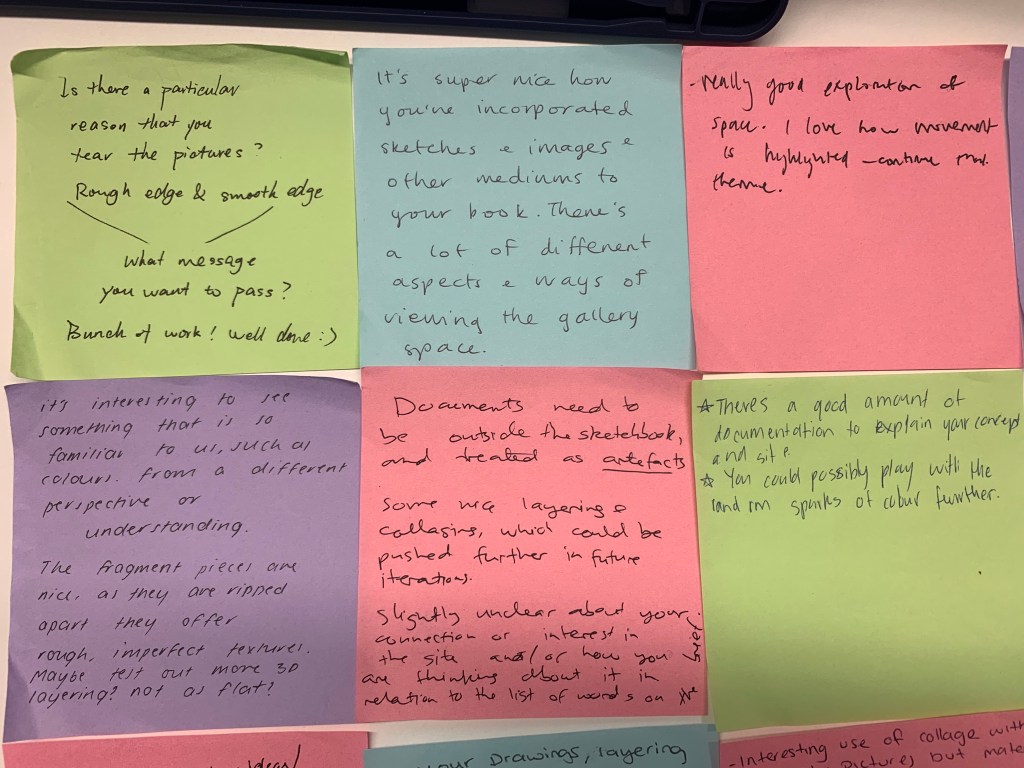 Is there a particular
reason that you
tear the pictures?
Rough edge & smooth edge
What message
you want to pass?
Bunch of work! Well done :)
It's super nice how
you've incorporated
sketches & images &
other mediums to
your book. There's
a lot of different
aspects & ways of
viewing the gallery
space.
- really good exploration of
space. I love how movement
is highlighted - continue this
theme.
it's interesting to see
something that is so
familiar to us, such as
colours. From a different
perspective or
understanding.
The fragment pieces are
nice, as they are ripped
apart they offer
rough, imperfect textures.
Maybe test out more 3D
layering? not as flat?
Documents need to
be outside the sketchbook,
and treated as artefacts
Some nice layering &
collaging, which could be
pushed further in future
iterations.
Slightly unclear about your
connection or interest in
the site and/or how you
are thinking about it in
relation to the list of words on the
brief
☆ Theres a good amount of
documentation to explain your concept
and site
☆ You could possibly play with the
random sparks of colour further.
your Drawings, layering
- Interesting use of collage with
pictures) but mate